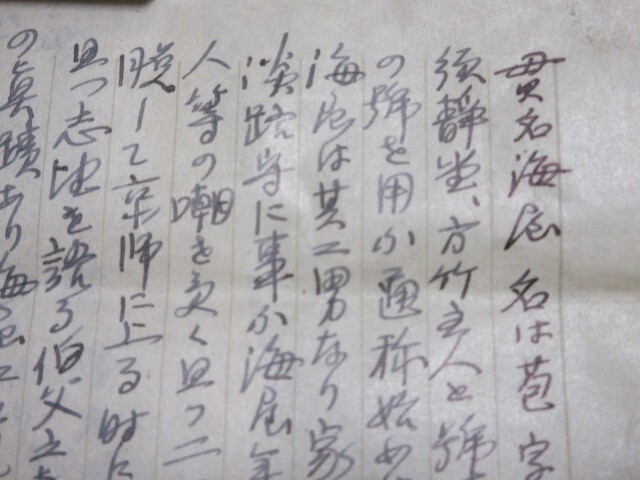 貫名海屋名は苞字
須静堂、方竹主人と號
の號を用ふ通称始め
海屋は其二男なり家
淡路守に事ふ海屋年
人等の嘲を受く且つ二
脱して京師に上る時に
且つ志望を語る伯父
の真蹟あり海屋